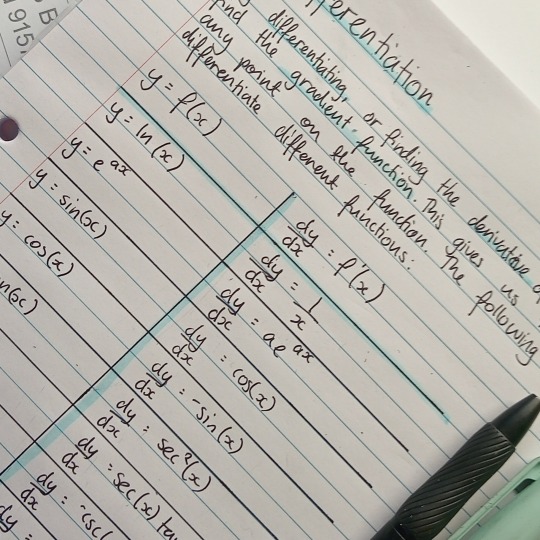 fferentiation
differentiating, or finding the derivative of
find the gradient function. This gives us
any point on the function. The following
differentiate different functions:
y = f(x) dy/dx = f'(x)
y = ln(x) dy/dx = 1/x
y = e^ax dy/dx = ae^ax
y = sin(x) dy/dx = cos(x)
y = cos(x) dy/dx = -sin(x)
n(x) dy/dx = sec²(x)
dy/dx = sec(x) tan
dy/dx = -csc(
dy
B
915